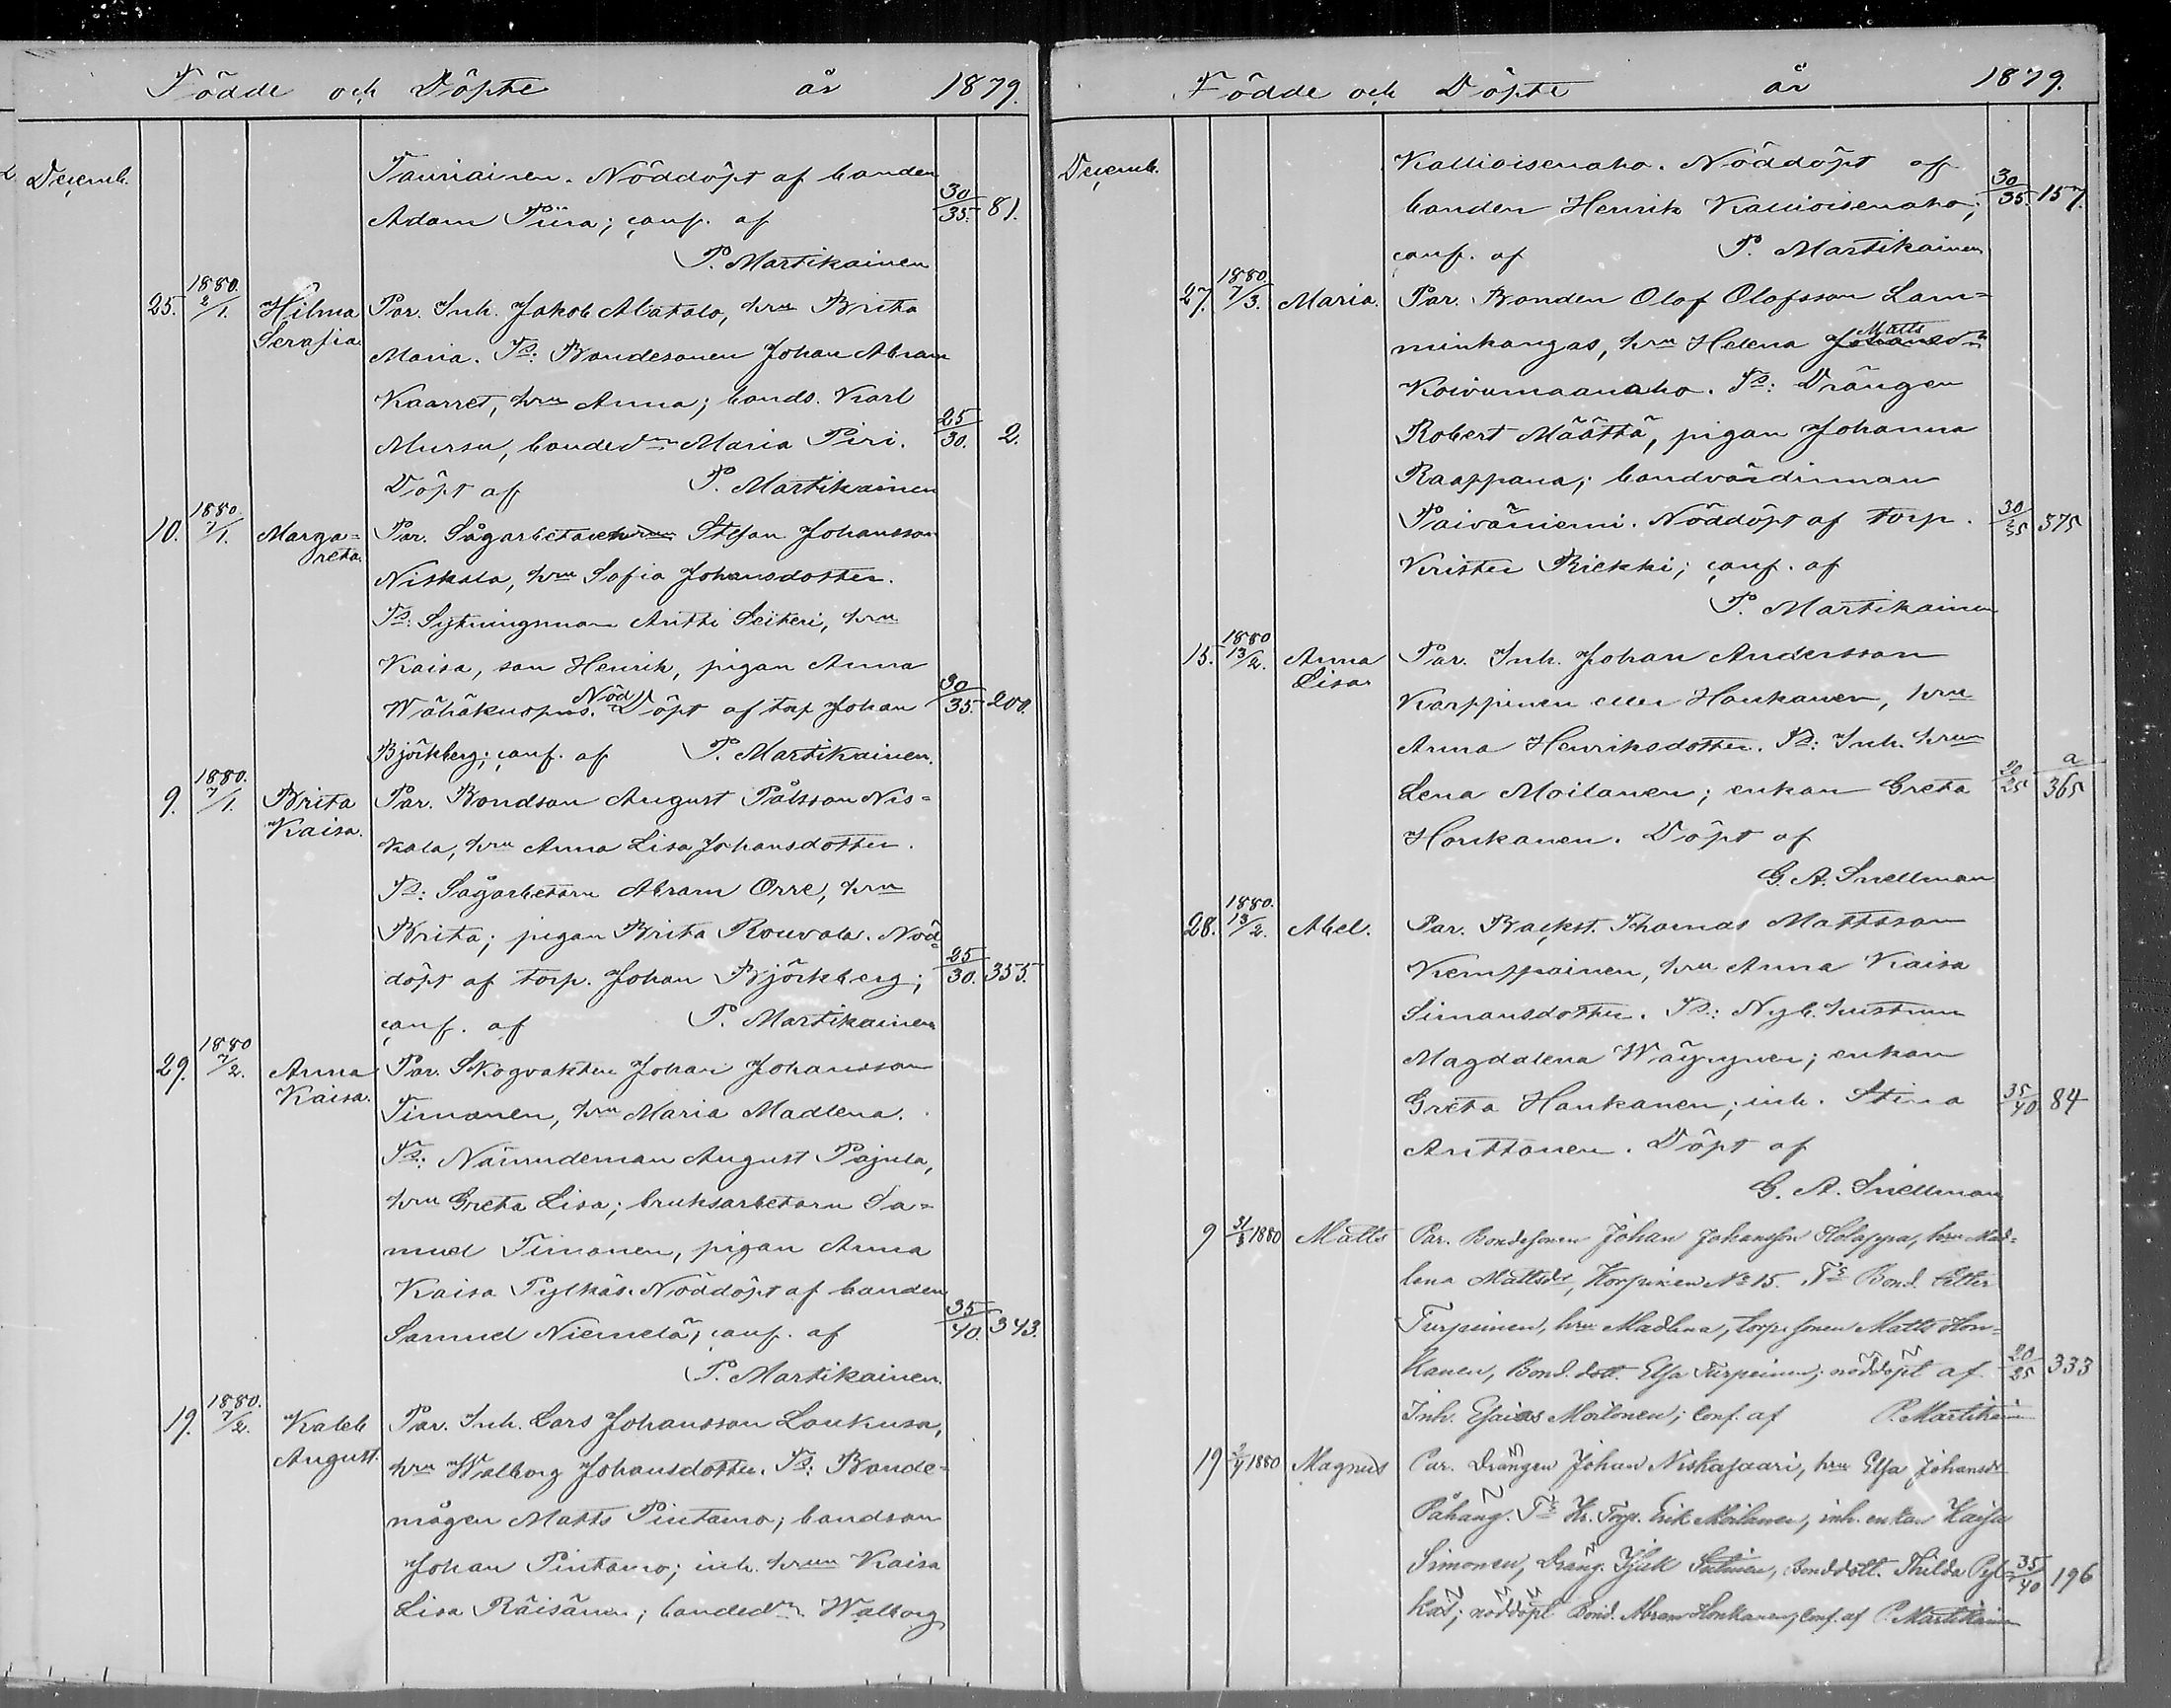 Födde och Döpte år 1879.
Decemb.
Tauriainen. Nöddöpt af bonden
Adam Tiira; conf. af 30/35. 81.
P. Martikainen
25. 1880. 2/1. Hilma Serafia Par. Inh. Jakob Alatalo, hru Brita
Maria. Ts: Bondesonen Johan Abram
Kaarret, hru Anna; bonds. Karl
Mursu, bondedn Maria Piri. 25/30. 2.
Döpt af P. Martikainen
10. 1880. 7/1. Marga=reta. Par. Sågarbetaren Stefan Johansson
Niskala, hru Sofia Johansdotter.
Ts: Sytningsman Antti Seikeri, hru
Kaisa, son Henrik, pigan Anna
Wähäkuopus. Nöd Döpt af torp Johan 30/35. 200.
Björkberg; conf. af P. Martikainen.
9. 1880. 7/1. Brita Kaisa. Par. Bondson August Pålsson Nis=
kala, hru Anna Lisa Johansdotter.
Ts: Sågarbetarn Abram Orre, hru
Brita; pigan Brita Rouvala. Nöd=
döpt af torp. Johan Björkberg; 25/30. 355.
conf. af P. Martikainen
29. 1880 7/2. Anna Kaisa. Par. Skogvakten Johan Johansson
Timonen, hru Maria Madlena.
Ts: Nämndeman August Pajula,
hru Greta Lisa; bruksarbetarn Sa=
muel Timonen, pigan Anna
Kaisa Pylkäs. Nöddöpt af bonden
Samuel Niemelä, conf. af 35/40. 343.
P. Martikainen.
19. 1880. 7/2. Kaleb August. Par. Inh. Lars Johansson Loukusa,
hru Walborg Johansdotter. Ts: Bonde=
mågen Matts Pintamo; bondson
Johan Pintamo; inh. hrun Kaisa
Lisa Räisänen; bondedn. Walborg
Födde och Döpte år 1879.
Decemb.
Kallioisenaho. Nöddöpt af
bonden Henrik Kallioisenaho; 30/35. 157.
conf. af P. Martikainen
27. 1880. 7/3. Maria. Par. Bonden Olof Olofsson Lam=
minkangas, hru Helena Matts
Koivumaanaho. Ts: Drängen
Robert Määttä, pigan Johanna
Raappana; bondvärdinnan
Paiväniemi. Nöddöpt af torp. 30/35 375
Krister Riekki; conf. af
P. Martikainen
15. 1880 13/2. Anna Lisa Par. Inh. Johan Andersson
Karppinen eller Honkanen, hru
Anna Henriksdotter. Ts: Inh. hrun
Lena Moilanen; enkan Greta 20/25 a/365
Honkanen. Döpt af
G. A. Snellman
28. 1880. 13/2. Abel. Par. Backst. Thomas Mattsson
Kemppainen, hru Anna Kaisa
Simonsdotter. Ts: Nyb. hustrun
Magdalena Wäyrynen; enkan
Greta Honkanen; inh. Stina 35/40 84
Anttonen. Döpt af
G. A. Snellman
9 31/3 1880 Matts Par. Bondesonen Johan Johansson Holappa, hru Mad=
lena Mattsdr, Korpinen No 15. Ts Bond. Petter
Turpeinen, hru Madlena, torp. sonen Matts Hon=
kanen, Bond. dott. Elsa Turpeinen; nöddöpt af 20/25 333
Inh. Esaias Moilanen; conf. af P. Martikain
19 1880 Magnus Par. Drängen Johan Niskasaari, hru Elsa Johansdr
Påhang. Ts Kr. Torp. Erik Moilanen, inh. enkan Kaisa
Simonen, Dräng. Isak Sutinen, Bonddott. Thilda Pyl= 35/40 196
käs; nöddöpt Bond. Abram Honkanen, conf. af P. Martikain